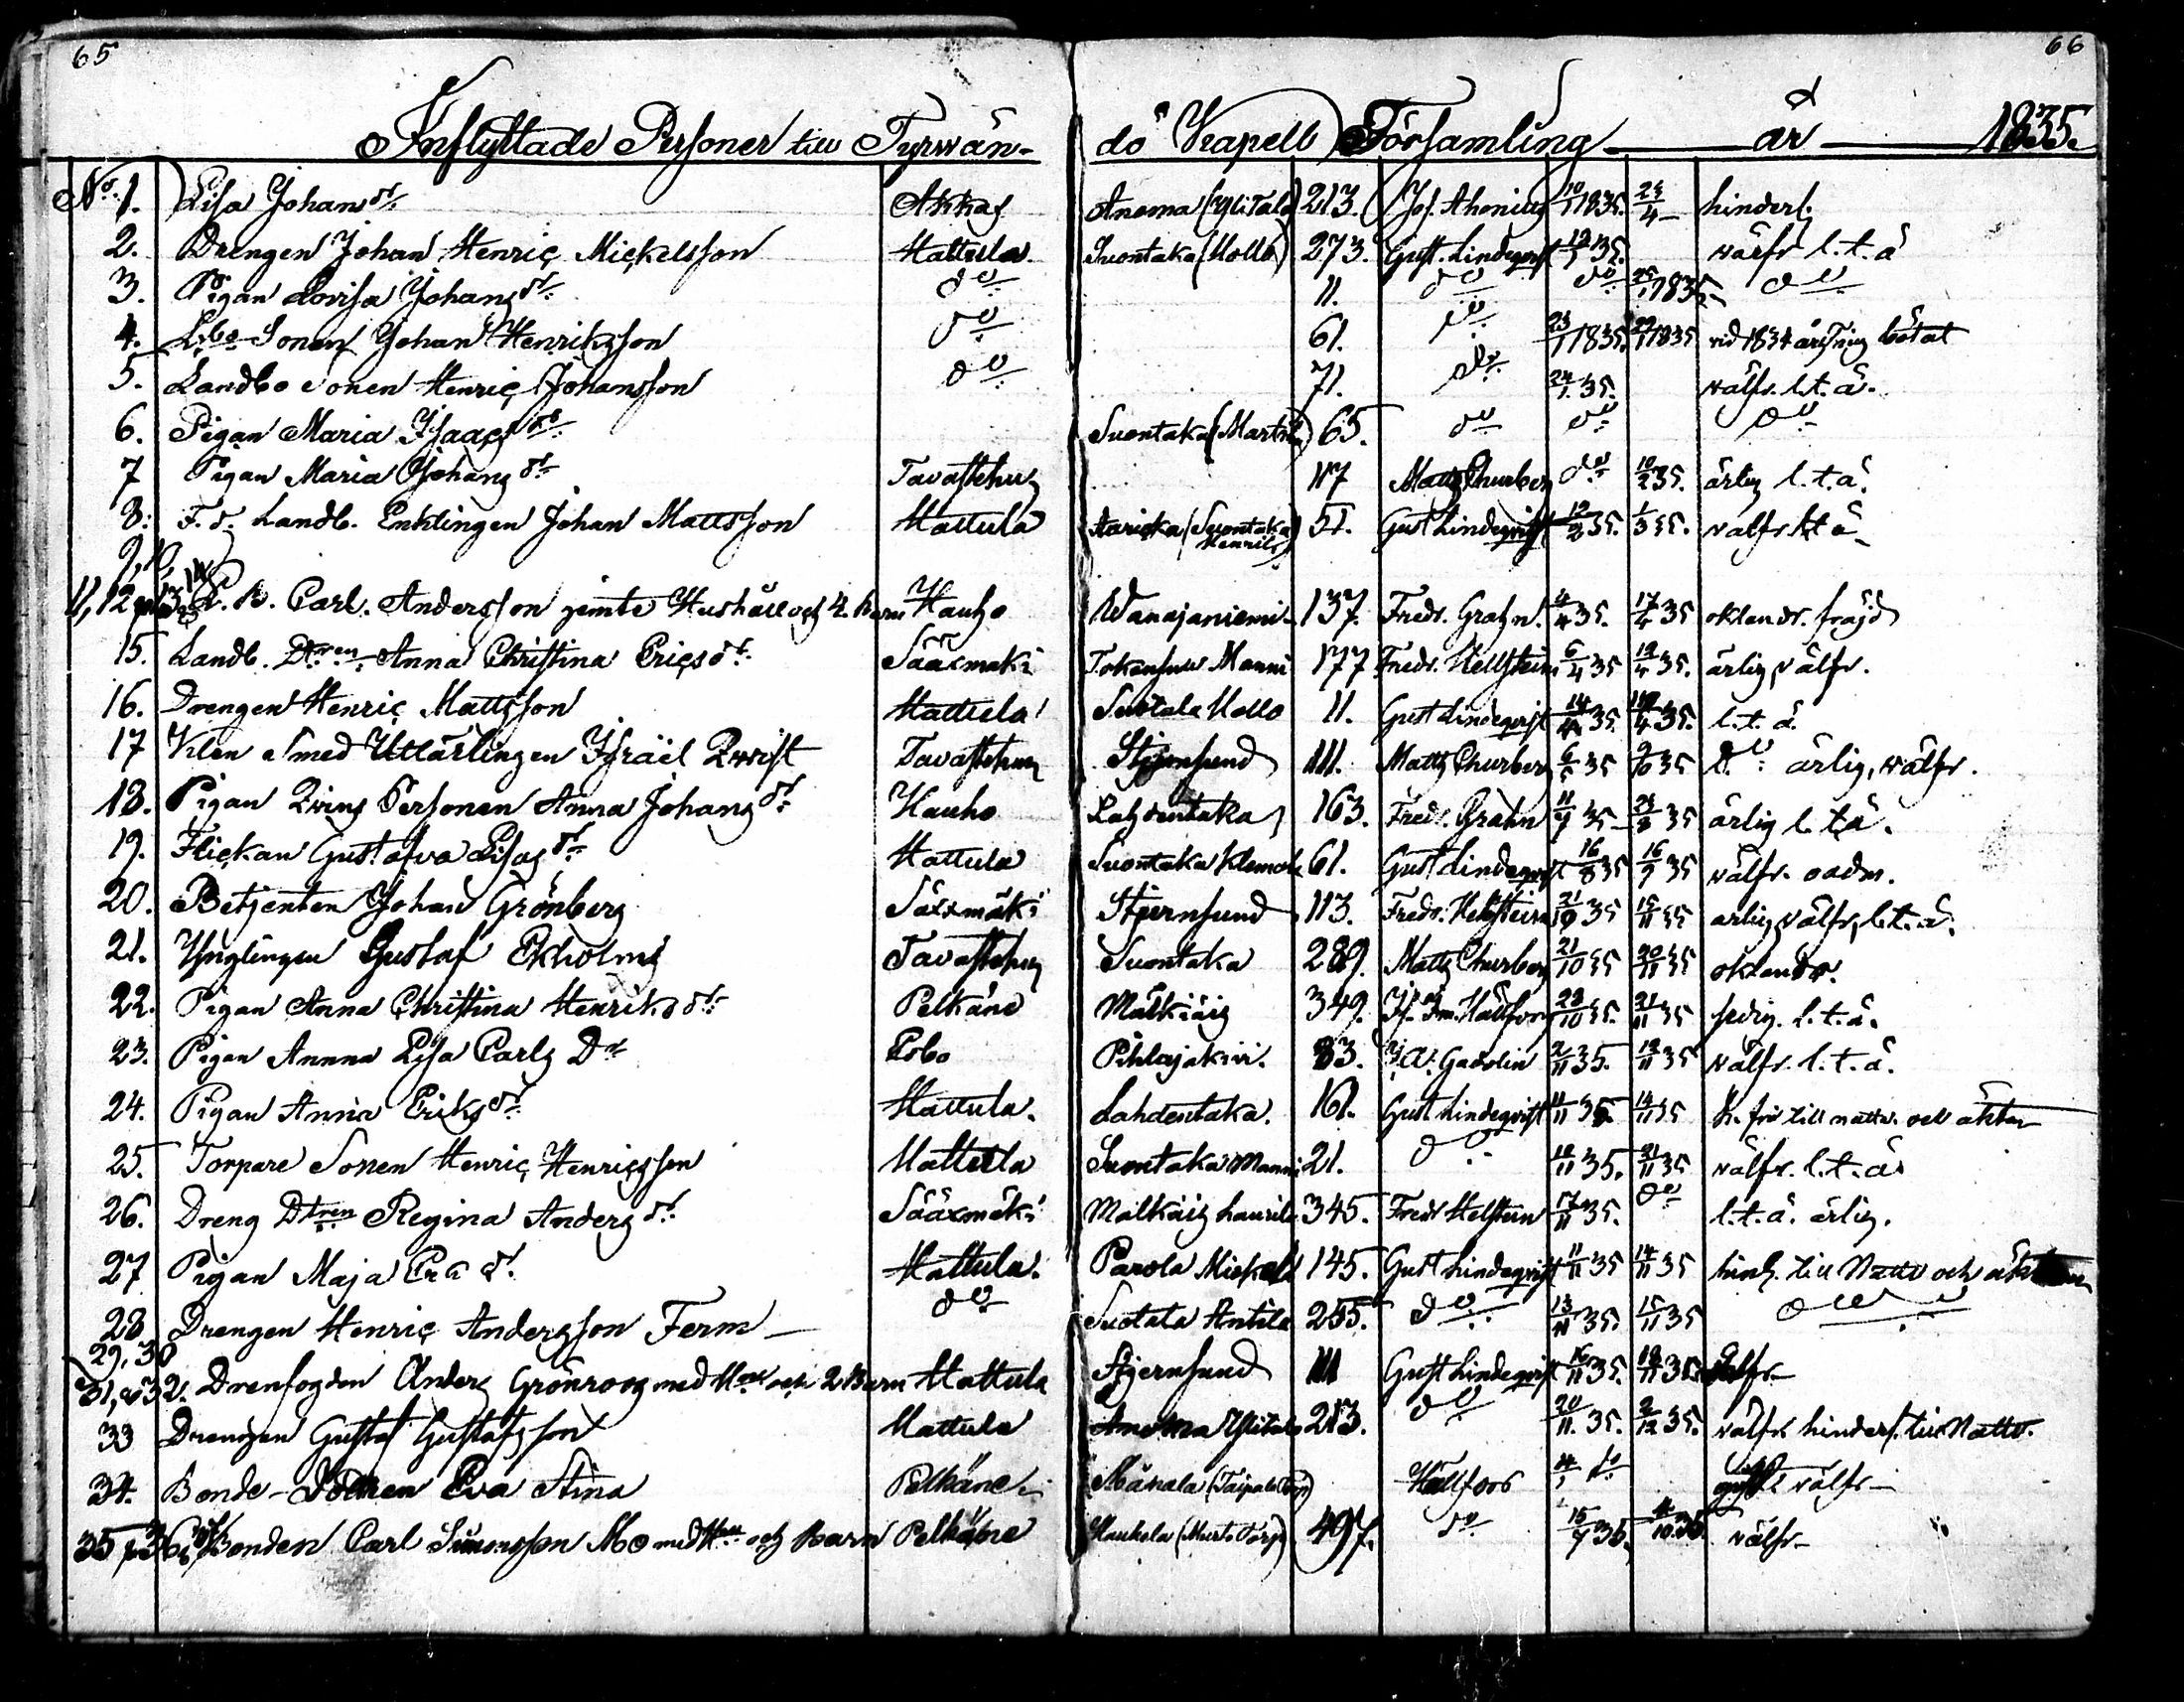 65
66
Inflyttade Personer till Tyrwän-
dö Kapell Församling år 1835.
No. 1. Lisa Johans dr. Akkas Anoma (Ylitalo) 213. Jos. Ahenius 10/1 1835. 23/4 hinderl.
2. Drengen Johan Henric Mickelsson Hattula Suontaka (Mollo) 273. Gust. Lindeqvist 19/1 35. wälfr l. t. ä
3. Pigan Lovisa Johans dr. do 11. do do 25/1 1835. do
4. Ldbo Sonen Johan Henriksson do 61. do 23/1 1835. 1835 vid 1834 års Ting bötat
5. Landbo Sonen Henric Johansson do 71. do 24/1 35. wälfr. l. t. ä.
6. Pigan Maria Isaacs dr. Suontaka (Marttila) 65. do do do
7 Pigan Maria Johans dr. Tavastehus 117 Matts Churberg do 10/2 35. ärlig l. t. ä.
8. F. d. Landb. Enklingen Johan Mattsson Hattula (Suontaka Henrils) 51. Gust Lindeqvist 12/2 35. 1/3 35. wälfr l. t ä
9, 10,
11, 12, 13, 14 Carl. Andersson jemte Hushåll och 4. barn Hauho Wanajaniemi 137. Fredr. Grahn. 4/4 35. 17/4 35 oklandr. frejd
15. Landb. Dtren Anna Christina Erics dr. Sääxmäki Manni 177 Fredr. Hellstein 6/4 35 12/4 35. ärlig, välfr.
16. Drengen Henric Mattsson Hattula Suotala Mollo 11. Gust Lindeqvist 14/4 35. 35. l. t. ä.
17 Klen Smed Utlärlingen Israël Qwist Tavastehus Stjernsund 111. Matts Churberg 6/5 35 9/10 35 do ärlig, wälfr.
18. Pigan Qvins Personen Anna Johans dr. Hauho Lahdentaka 163. Fredr. Grahn 11/7 35 23/8 35 ärlig l. t. ä.
19. Flickan Gustafva Lisas dr. Hattula Suontaka Klemola 61. Gust Lindeqvist 16/8 35 16/9 35 wälfr. oadm.
20. Betjenten Johan Grönberg Sääxmäki Stjernsund 113. Fredr. Hellstein 21/9 35 15/11 35 ärlig, välfr, l. t. ä.
21. Ynglingen Gustaf Ekholm Tavastehus Suontaka 289. Matts Churberg 21/10 35 20/11 35 oklandr.
22. Pigan Anna Christina Henriks dr. Pelkäne Mälkiäis 349. Hällfors 28/10 35. 21/11 35 sedig. l. t. ä.
23. Pigan Annna Lisa Carls Dr Esbo Pihlajakivi. 83. Gadolin 2/11 35. 12/11 35 wälfr. l. t. ä.
24. Pigan Anna Eriks dr. Hattula. Lahdentaka. 161. Gust Lindeqvist 11/11 35. 14/11 35 h. fri till nattv. och äkten
25. Torpare Sonen Henric Henricsson Hattula Suontaka Manni 21. do 12/11 35. 21/11 35 wälfr. l. t. ä.
26. Dreng Dtren Regina Anders dr. Sääxmäki Mälkiäis 345. Fredr Helstein 17/11 35. do l. t. ä. ärlig.
27 Pigan Maja Hattula. Parola Mickola 145. Gust Lindeqvist 11/11 35 14/11 35 hind. till Nattv och
28 Drengen Henric Andersson Ferm do Suotala Antila 255. do 13/11 35. 15/11 35 do
29, 30
31, o 32. Drenfogden Anders Grönroos med Hust och 2 Barn Hattula Stjernsund 111 Gust Lindeqvist 16/11 35. 19/11 35. wälfr
33 Drengen Gustaf Gustafsson Hattula Anoma Ylitalo 213. do 20/11. 35. 2/12 35. wälfr hinderl. till Nattv.
34. Bonde-Dottren Eva Stina Pelkäne Hällfors wälfr
35, 36, Bonden Carl Simonsson Mo med Hu och Barn Pelkäne 497. do 15/9 36. wälfr